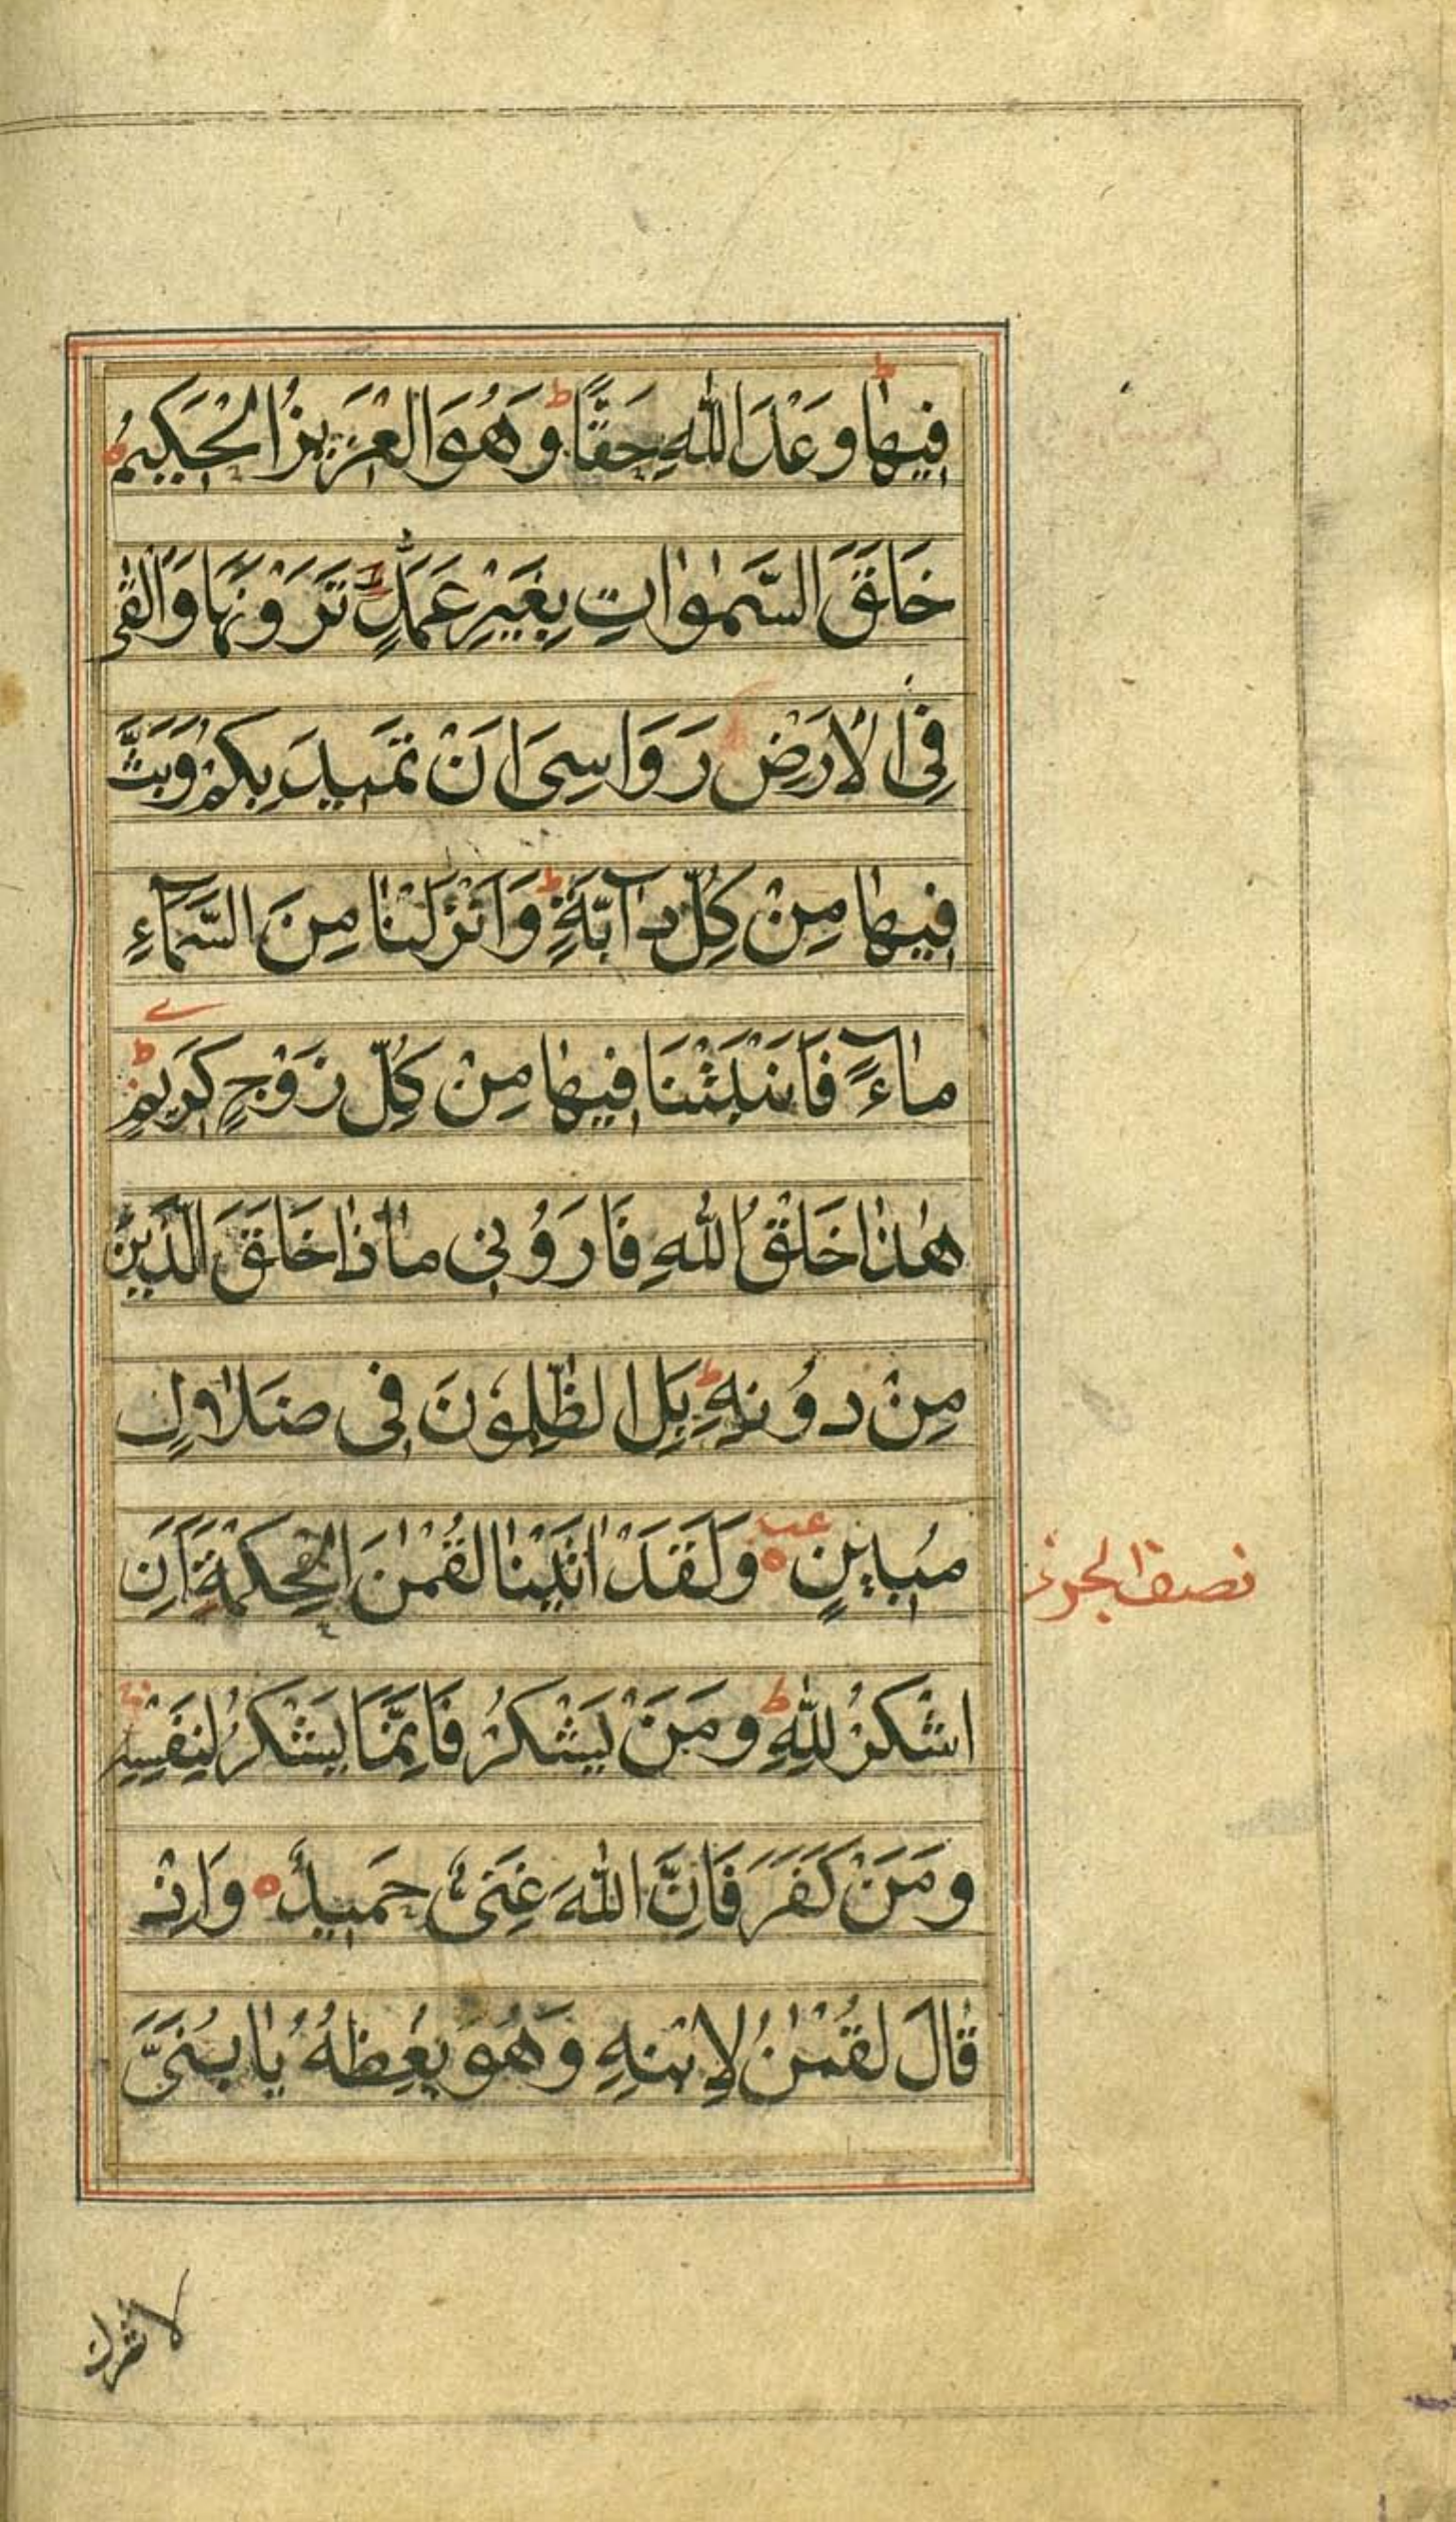 فِيهٰا وَعْدَ اللّٰهِ حَقًّا ط وَهُوَ الْعَزِيزُ الْحَكِيمُ
خَلَقَ السَّمٰوٰاتِ بِغَيْرِ عَمَدٍ تَرَوْنَهَا وَاَلْقٰى
فِى الْاَرْضِ رَوَاسِىَ اَنْ تَمِيدَ بِكُمْ وَبَثَّ
فِيهٰا مِنْ كُلِّ دَآبَّةٍ ط وَاَنْزَلْنٰا مِنَ السَّمَآءِ
مٰاءً فَاَنْبَتْنَا فِيهٰا مِنْ كُلِّ زَوْجٍ كَرِيمٍ ط
هٰذٰا خَلْقُ اللّٰهِ فَاَرُوْنِى مٰاذٰا خَلَقَ الَّذِينَ
مِنْ دُوْنِهِ ط بَلِ الظّٰلِمُوْنَ فِى ضَلَالٍ
مُبِينٍ ٥ وَلَقَدْ اٰتَيْنٰا لُقْمٰنَ الْحِكْمَةَ اَنِ
اشْكُرْ لِلّٰهِ ط وَمَنْ يَشْكُرْ فَاِنَّمَا يَشْكُرُ لِنَفْسِهِ
وَمَنْ كَفَرَ فَاِنَّ اللّٰهَ غَنِىٌّ حَمِيدٌ ٥ وَاِذْ
قٰالَ لُقْمٰنُ لِابْنِهِ وَهُوَ يَعِظُهُ يٰا بُنَىَّ
نصف الجزء
لا تشرك